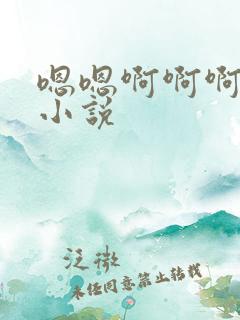 嗯嗯啊啊啊
小說
泛微
未经同意禁止转载